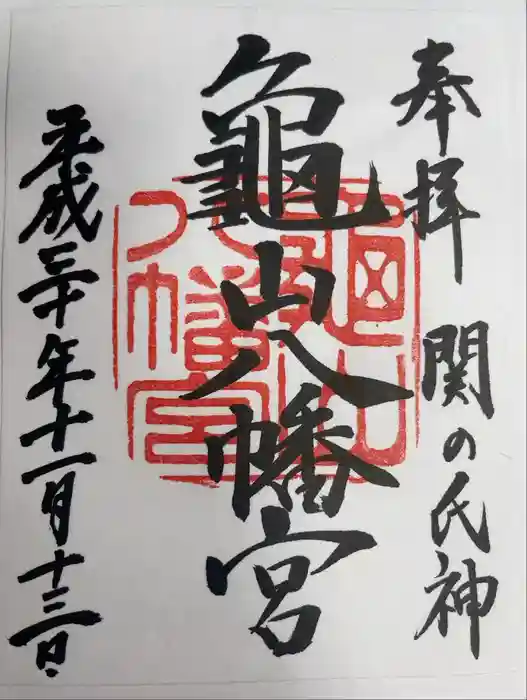 奉拝 関の氏神
龜山八幡宮
平成三十年十一月十三日
龜山八幡宮